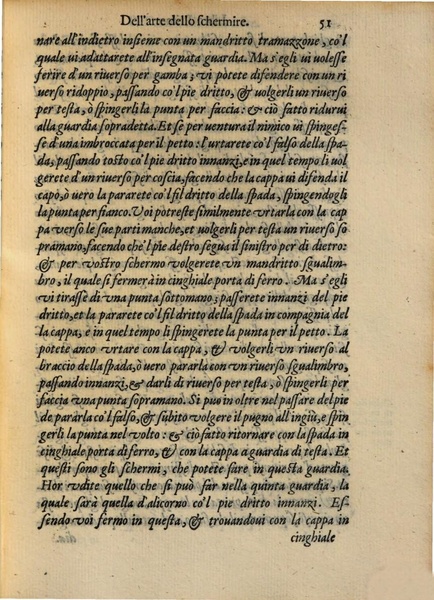 Dell'arte dello schermire. 51
nare all'indietro insieme con un mandritto tramazzone, co'l
quale vi adattarete all'insegnata guardia. Ma s'egli vi volesse
ferire d'un riuerso per gamba; vi potete difendere con un ri
uerso ridoppio, passando co'l pie dritto, & volgerli un riuerso
per testa, ò spingerli la punta per faccia: & ciò fatto ridurui
alla guardia sopradetta. Et sè per ventura il nimico vi spinges-
se d'una imbroccata per il petto: l'urtarete co'l falso della spa-
da, passando tosto co'l pie dritto innanzi, e in quel tempo li vol
gerete d'un riuerso per coscia, facendo che la cappa vi difenda il
capo, ò uero la pararete co'l fil dritto della spada, spingendogli
la punta per fianco. Voi potreste similmente vrtarla con la cap
pa verso le sue parti manche, et volgerli per testa un riuerso so
pramano, facendo che'l pie destro segua il sinistro per di dietro:
& per vostro schermo volgerete vn mandritto sgualim-
bro, il quale si fermerà in cinghiale porta di ferro. Ma s'egli
vi tirasse di una punta sottomano; passerete innanzi del pie
dritto, et la pararete co'l fil dritto della spada in compagnia del
la cappa, e in quel tempo li spingerete la punta per il petto. La
potete anco vrtare con la cappa, & volgerli vn riuerso al
braccio della spada, ò uero pararla con vn riuerso sgualimbro,
passando innanzi, & darli di riuerso per testa, ò spingerli per
faccia vna punta sopramano. Si puo in oltre nel passare del pie
de pararla co'l falso, & sùbito volgere il pugno all'ingiù, e spin
gerli la punta nel volto: & ciò fatto ritornare con la spada in
cinghiale porta di ferro, & con la cappa a guardia di testa. Et
questi sono gli schermi, che potete fare in questa guardia.
Hor vdite quello che si può far nella quinta guardia, la
quale sarà quella d'alicorno co'l pie dritto innanzi. Es-
sendo voi fermo in questa, & trouandoui con la cappa in
cinghiale